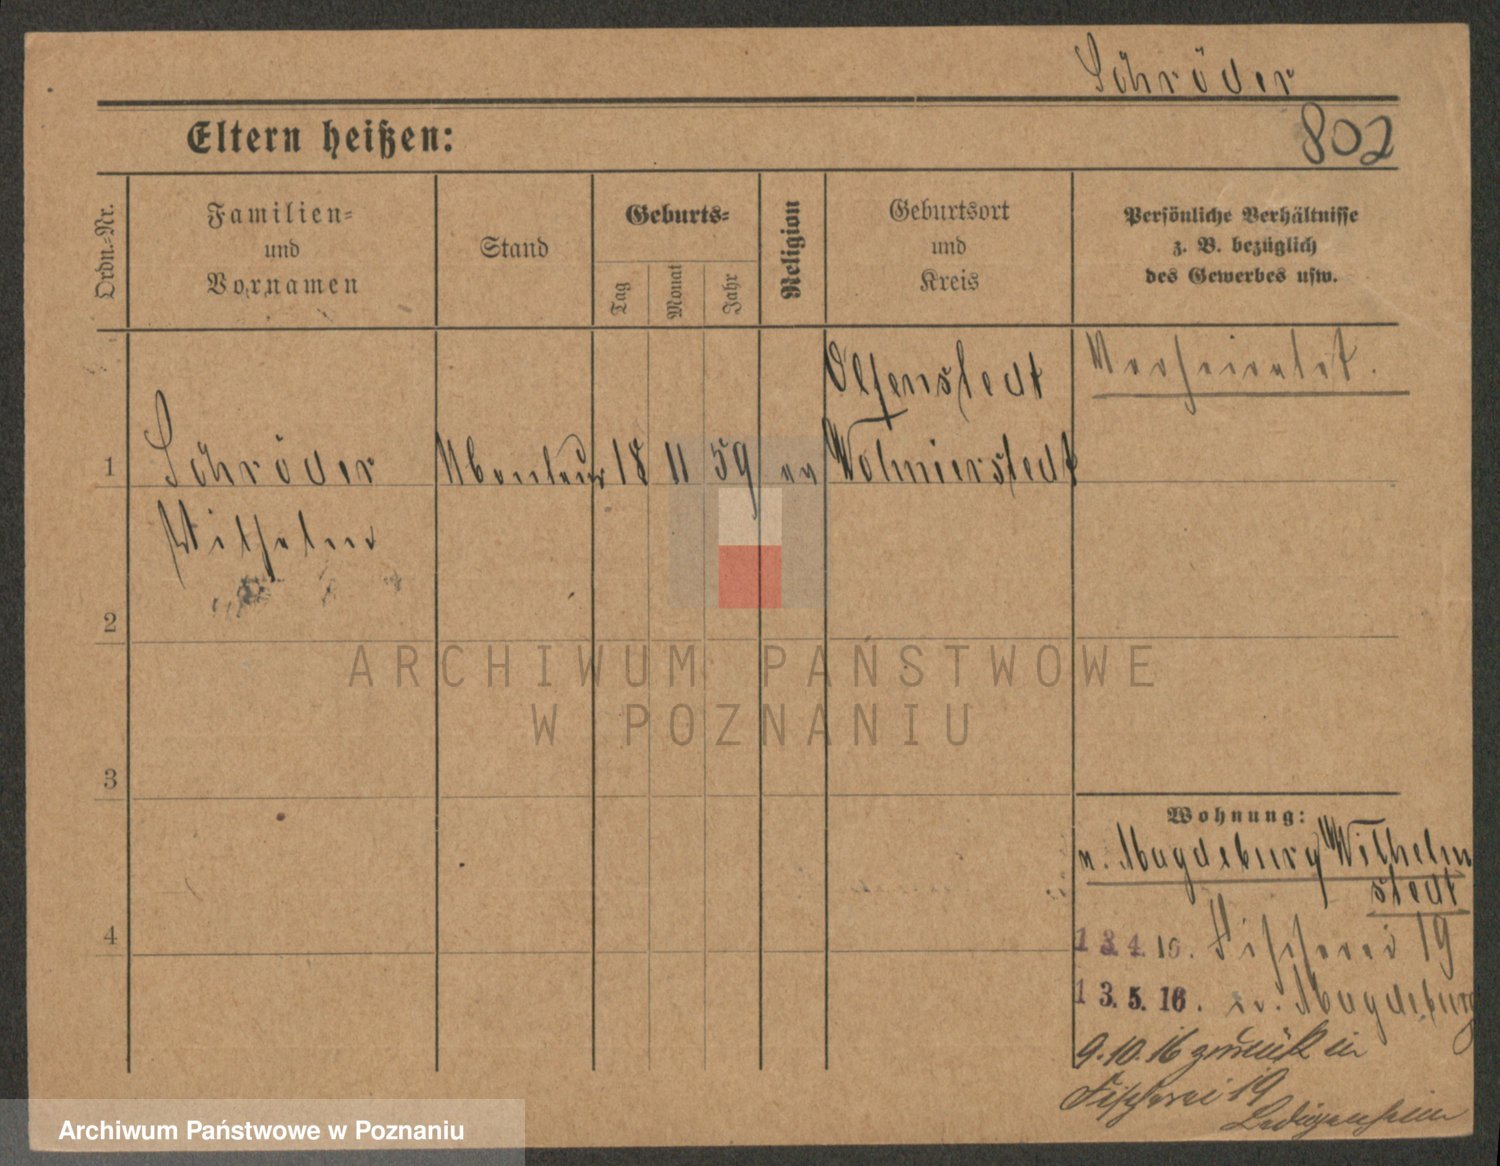 Schröder
802
Eltern heißen:
Ordn.=Nr.
Familien=
und
Vornamen
Stand
Geburts=
Tag
Monat
Jahr
Religion
Geburtsort
und
Kreis
Persönliche Verhältnisse
z. B. bezüglich
des Gewerbes usw.
Olfenstedt
Verheiratet.
1 Schröder Monteur 18 11 59 ev Wolmierstedt
Wilhelm
2
3
4
Wohnung:
n. Magdeburg Wilhelm
stedt
13.4.16. Fischerei 19
13.5.16. Magdeburg
9.10.16 zurück in
Fischerei 19
Ledigenheim
ARCHIWUM PAŃSTWOWE
W POZNANIU
Archiwum Państwowe w Poznaniu